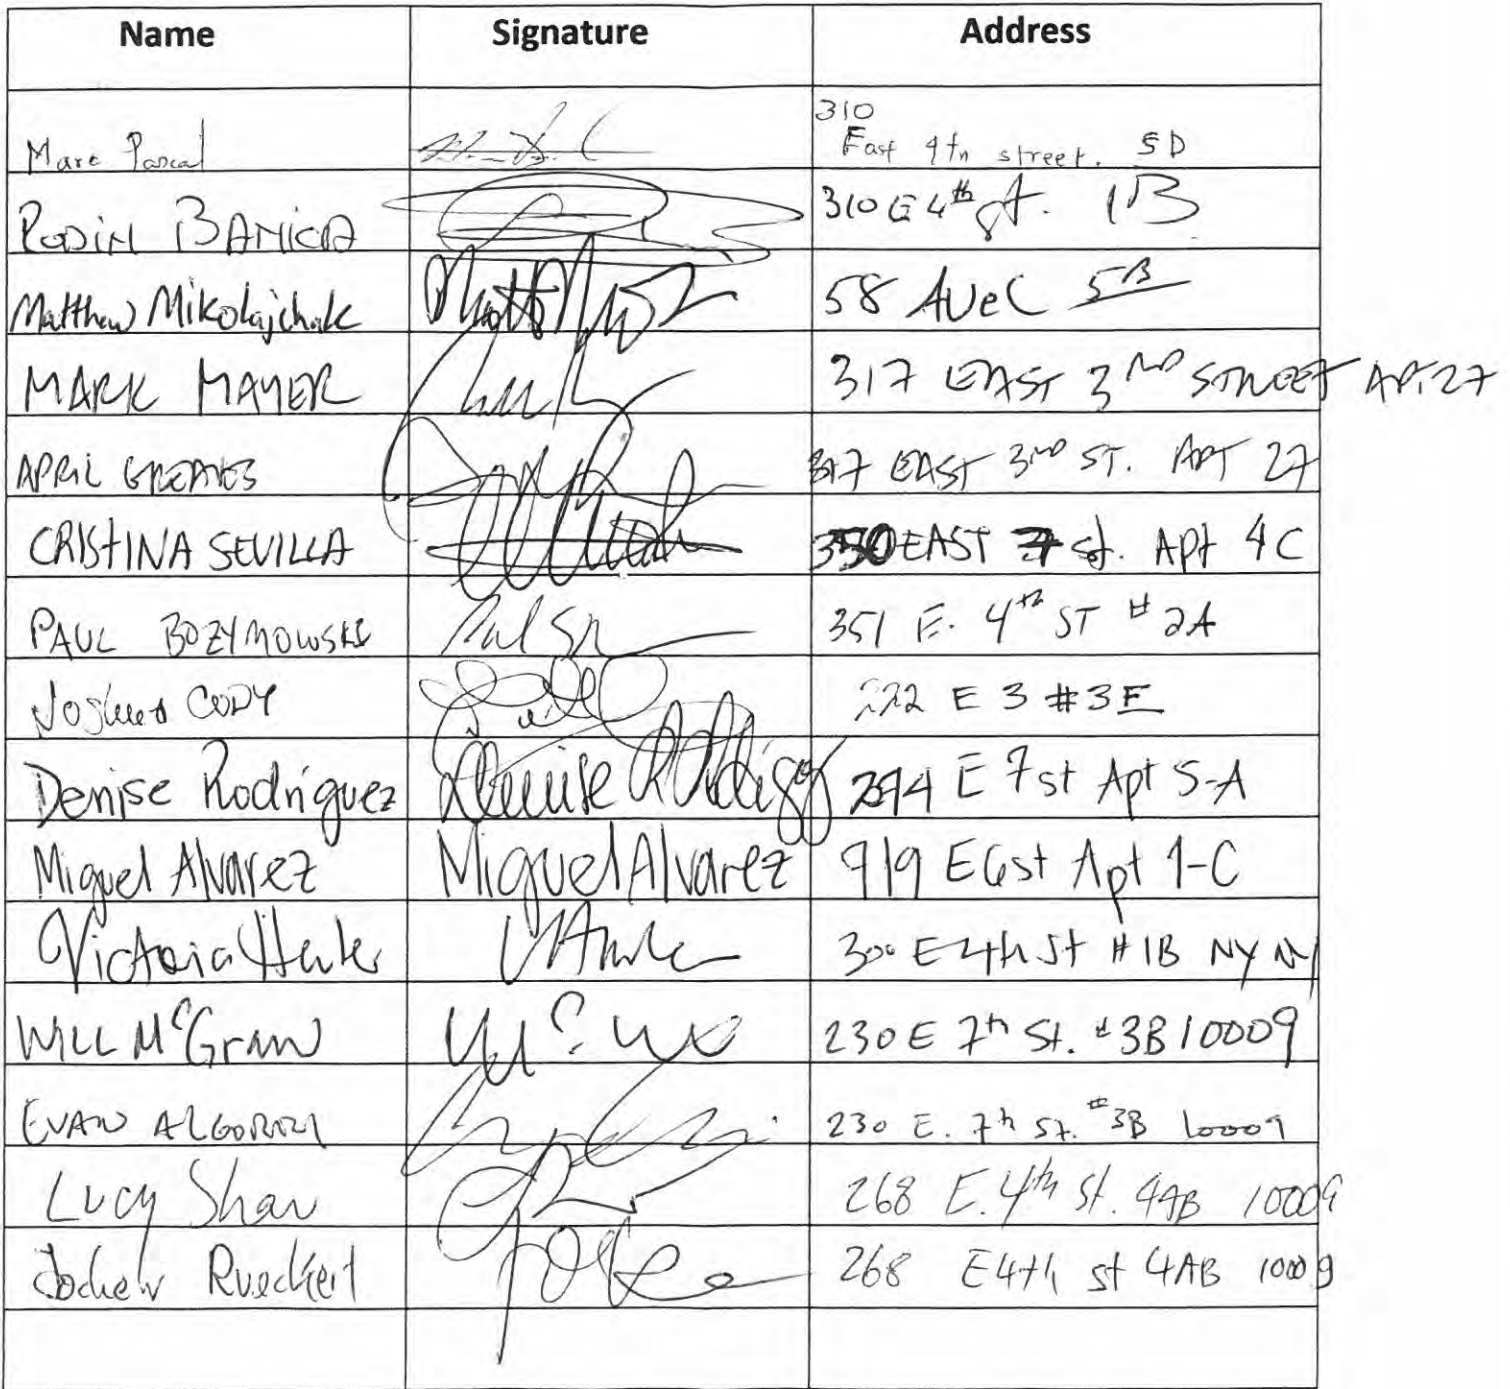 Name Signature Address
310
Marc Pascal East 4th street. 5D
RODIN BANICA 310 E 4th st. 1B
Matthew Mikolajchak 58 AVe C 5B
MARK MAYER 317 EAST 3RD STREET APT. 27
APRIL GREAVES 317 EAST 3RD ST. APT 27
CRISTINA SEVILLA 350 EAST 7 st. Apt 4C
PAUL BOZYMOWSKI 351 E. 4th ST #2A
Joshua CODY 222 E 3 #3E
Denise Rodriguez Denise Rodriguez E 7st Apt 5-A
Miguel Alvarez Miguel Alvarez 719 E 6st Apt 1-C
Victoria 300 E 4th St #1B NY NY
WILL McGraw 230 E 7th St. #3B 10009
EVAN 230 E. 7th St. #3B 10009
Lucy Shaw 268 E. 4th St. 4AB 10009
Jochen Rueckert 268 E 4th st 4AB 10009